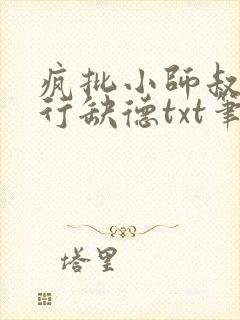 疯批小师叔
行缺德txt笔
塔里